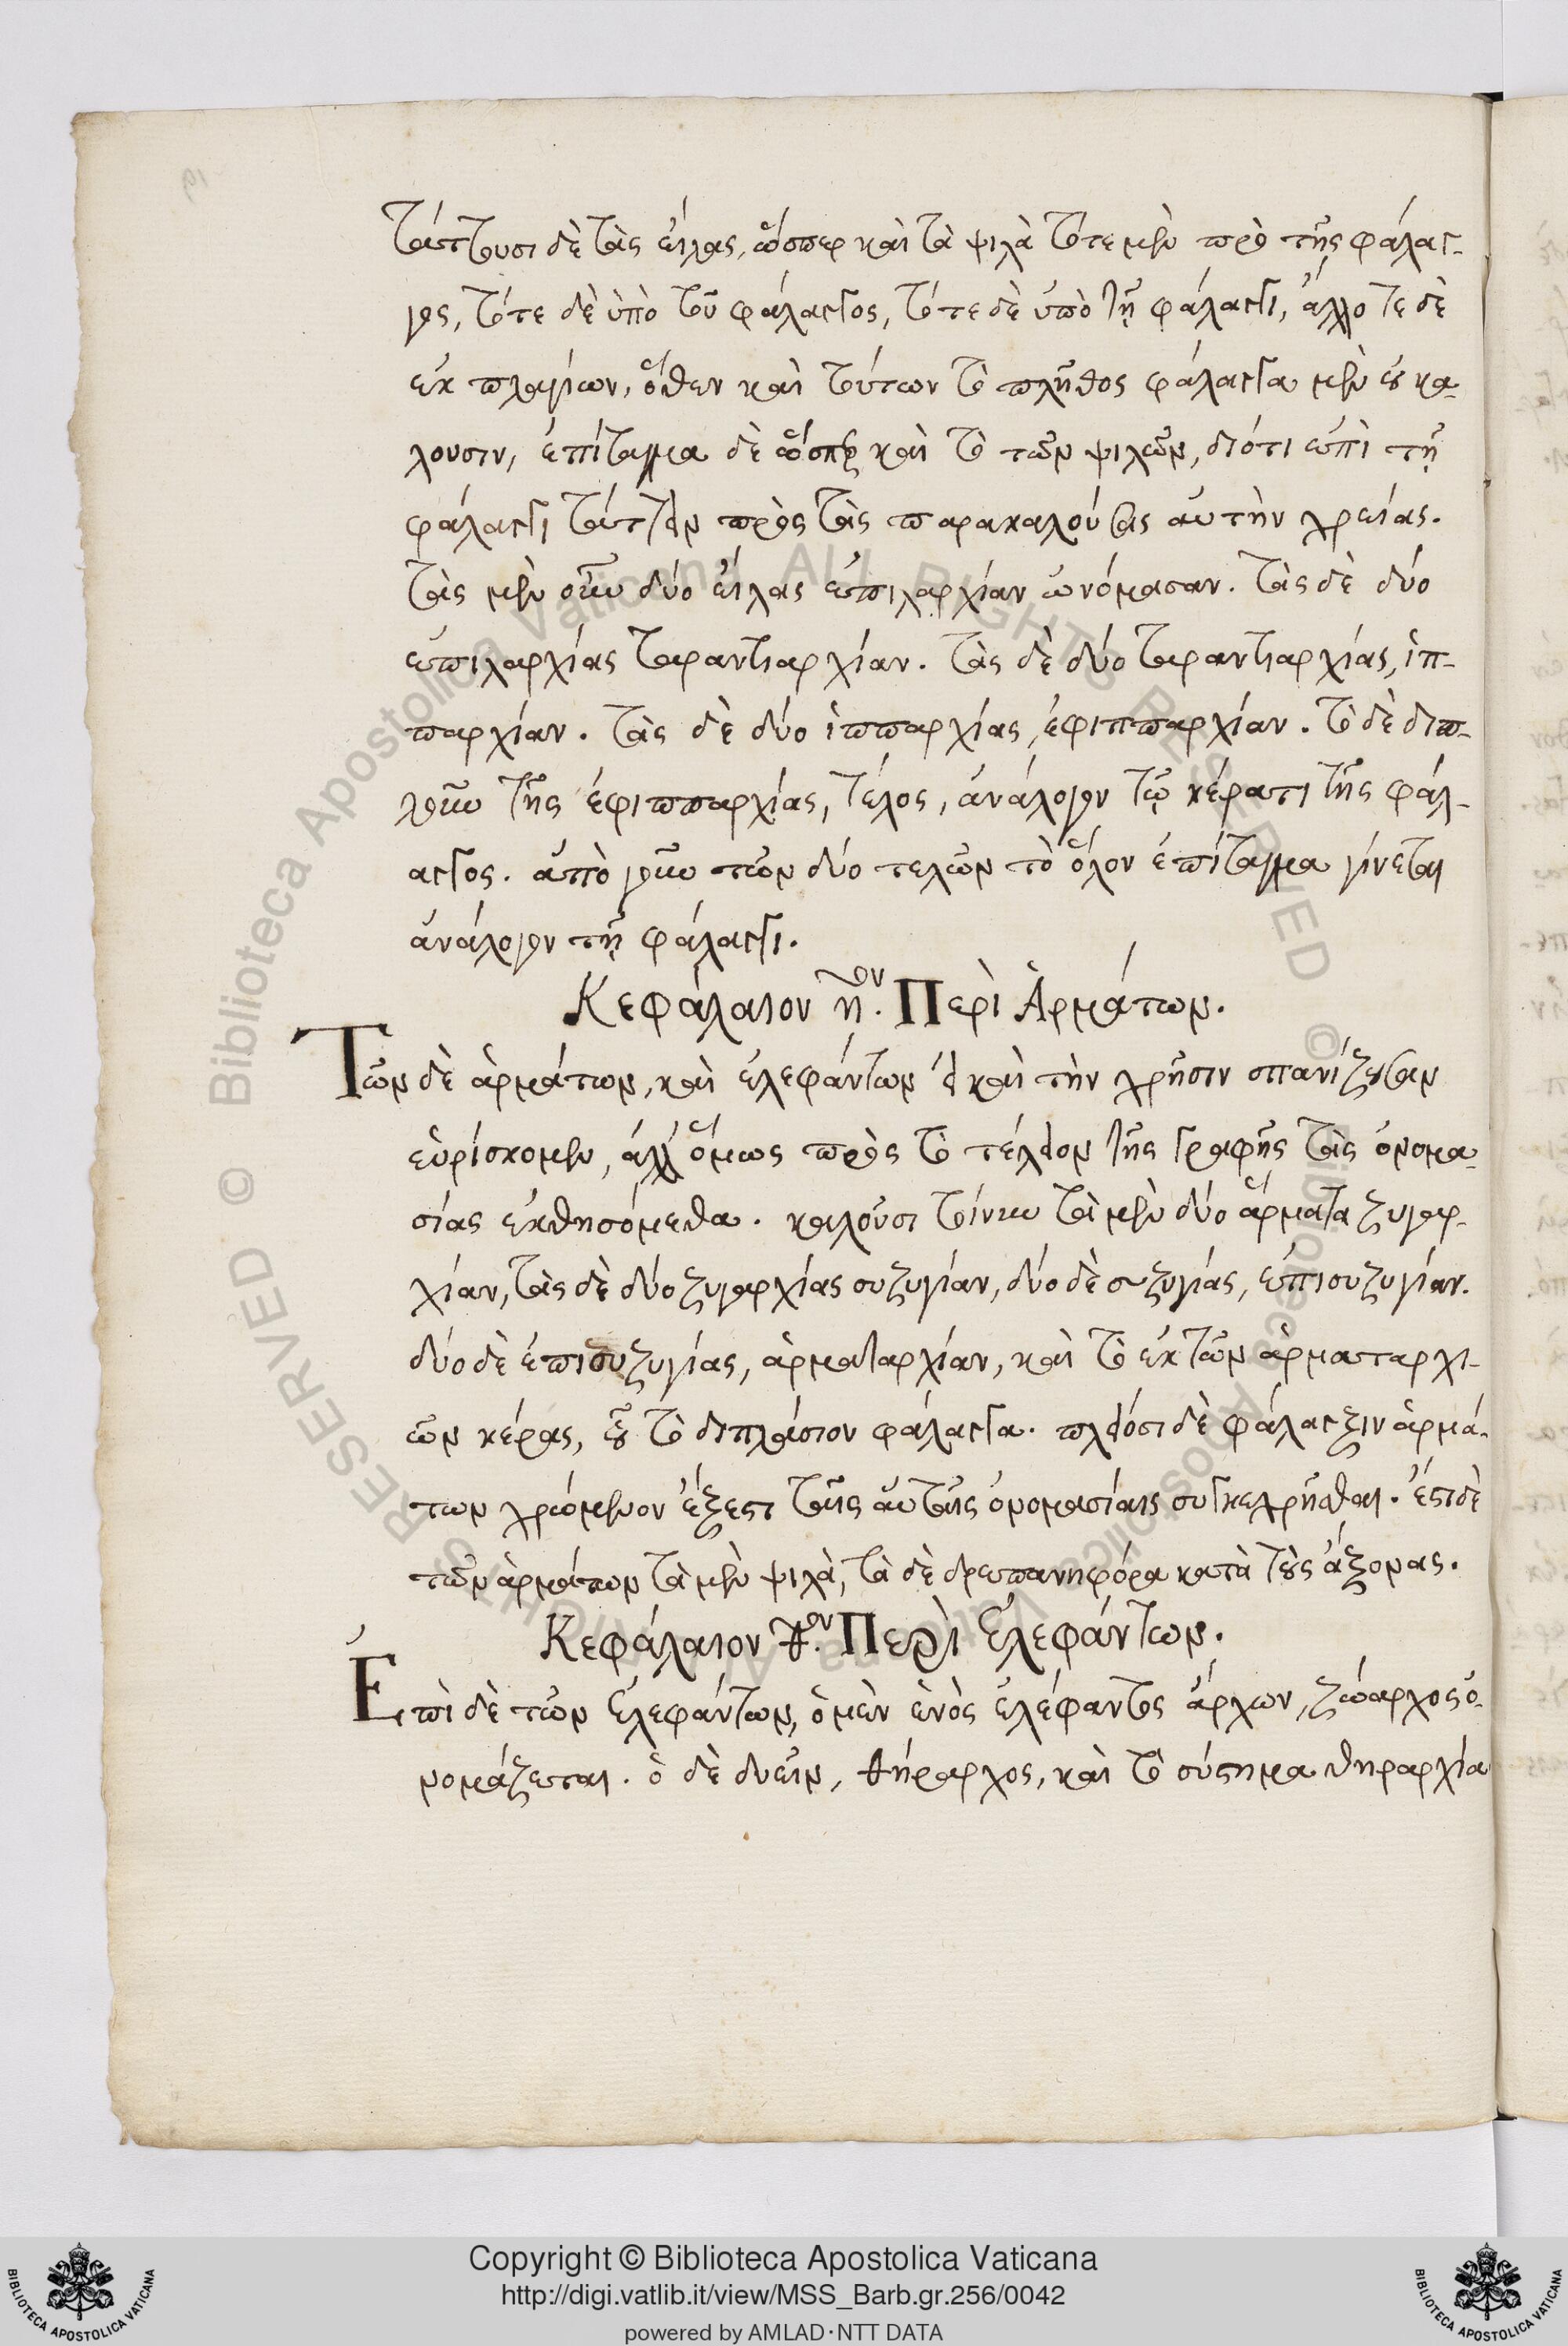 τάττουσι δὲ τὰς εἴλας, ὥσπερ καὶ τὰ ψιλὰ τότε μὲν πρὸ τῆς φάλαγ-
γος, τότε δὲ ὑπὸ τοῦ φάλαγγος, τότε δὲ ὑπὸ τῇ φάλαγγι, ἄλλο τε δὲ
ἐκ πλαγίων, ὅθεν καὶ τούτων τὸ πλῆθος φάλαγγα μὲν οὐ κα-
λουσιν, ἐπίταγμα δὲ ὥσπερ καὶ τὸ τῶν ψιλῶν, διότι ἐπὶ τῇ
φάλαγγι τάττειν πρὸς τὰς παρακαλούσας αὐτὴν χρείας.
τὰς μὲν οὖν δύο εἴλας ἐπιλαρχίαν ὠνόμασαν. τὰς δὲ δύο
ἐπιλαρχίας ταραντιαρχίαν. τὰς δὲ δύο ταραντιαρχίας, ἱπ-
παρχίαν. τὰς δὲ δύο ἱππαρχίας, ἐφιππαρχίαν. τὸ δὲ διπ-
λοῦν τῆς ἐφιππαρχίας, τέλος, ἀνάλογον τῷ κέρατι τῆς φάλ-
αγγος. ἀπὸ γοῦν τῶν δύο τελῶν τὸ ὅλον ἐπίταγμα γίνεται
ἀνάλογον τῇ φάλαγγι.
Κεφάλαιον η.ον Περὶ Ἁρμάτων.
Τῶν δὲ ἁρμάτων, καὶ ἐλεφάντων εἰ καὶ τὴν χρῆσιν σπανίζουσαν
εὑρίσκομεν, ἀλλ' ὅμως πρὸς τὸ τέλειον τῆς γραφῆς τὰς ὀνομα-
σίας ἐκθησόμεθα. καλοῦσι τοίνυν τὰ μὲν δύο ἅρματα ζυγαρ-
χίαν, τὰς δὲ δύο ζυγαρχίας συζυγίαν, δύο δὲ συζυγίας, ἐπισυζυγίαν.
δύο δὲ ἐπισυζυγίας, ἁρματαρχίαν, καὶ τὸ ἐκ τῶν ἁρματαρχι-
ῶν κέρας, οὗ τὸ διπλάσιον φάλαγγα. πλείοσι δὲ φάλαγξιν ἁρμά-
των χρώμενον ἔξεστι ταῖς αὐταῖς ὀνομασίαις συγκεχρῆσθαι. ἔστι δὲ
τῶν ἁρμάτων τὰ μὲν ψιλὰ, τὰ δὲ δρεπανηφόρα κατὰ τοὺς ἄξονας.
Κεφάλαιον θ.ον Περὶ Ἐλεφάντων.
Ἐπὶ δὲ τῶν ἐλεφάντων, ὁ μὲν ἑνὸς ἐλέφαντος ἄρχων, ζώαρχος ὀ-
νομάζεται. ὁ δὲ δυεῖν, θήραρχος, καὶ τὸ σύστημα θηραρχία
Copyright © Biblioteca Apostolica Vaticana
http://digi.vatlib.it/view/MSS_Barb.gr.256/0042
powered by AMLAD·NTT DATA